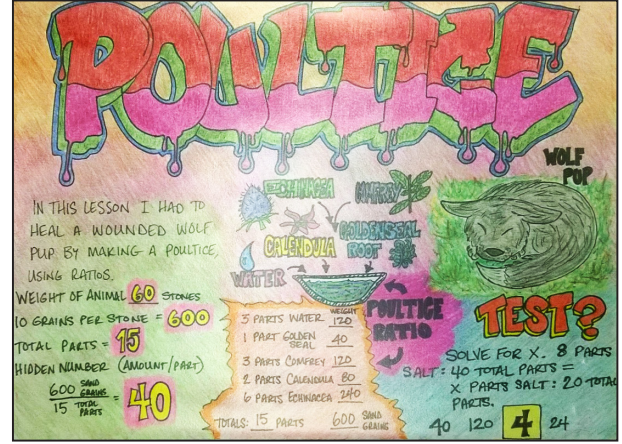 POULTICE
WOLF
PUP
IN THIS LESSON I HAD TO
HEAL A WOUNDED WOLF
PUP BY MAKING A POULTICE,
USING RATIOS.
WEIGHT OF ANIMAL 60 STONES
10 GRAINS PER STONE = 600
TOTAL PARTS = 15
HIDDEN NUMBER (AMOUNT/PART)
600 SAND GRAINS
15 TOTAL PARTS
= 40
ECHINACEA
COMFREY
CALENDULA
GOLDENSEAL
ROOT
WATER
POULTICE
RATIO
WEIGHT
3 PARTS WATER 120
1 PART GOLDEN SEAL 40
3 PARTS COMFREY 120
2 PARTS CALENDULA 80
6 PARTS ECHINACEA 240
TOTALS: 15 PARTS 600 SAND GRAINS
TEST?
SOLVE FOR X. 8 PARTS
SALT: 40 TOTAL PARTS =
X PARTS SALT: 20 TOTAL
PARTS.
40 120 4 24